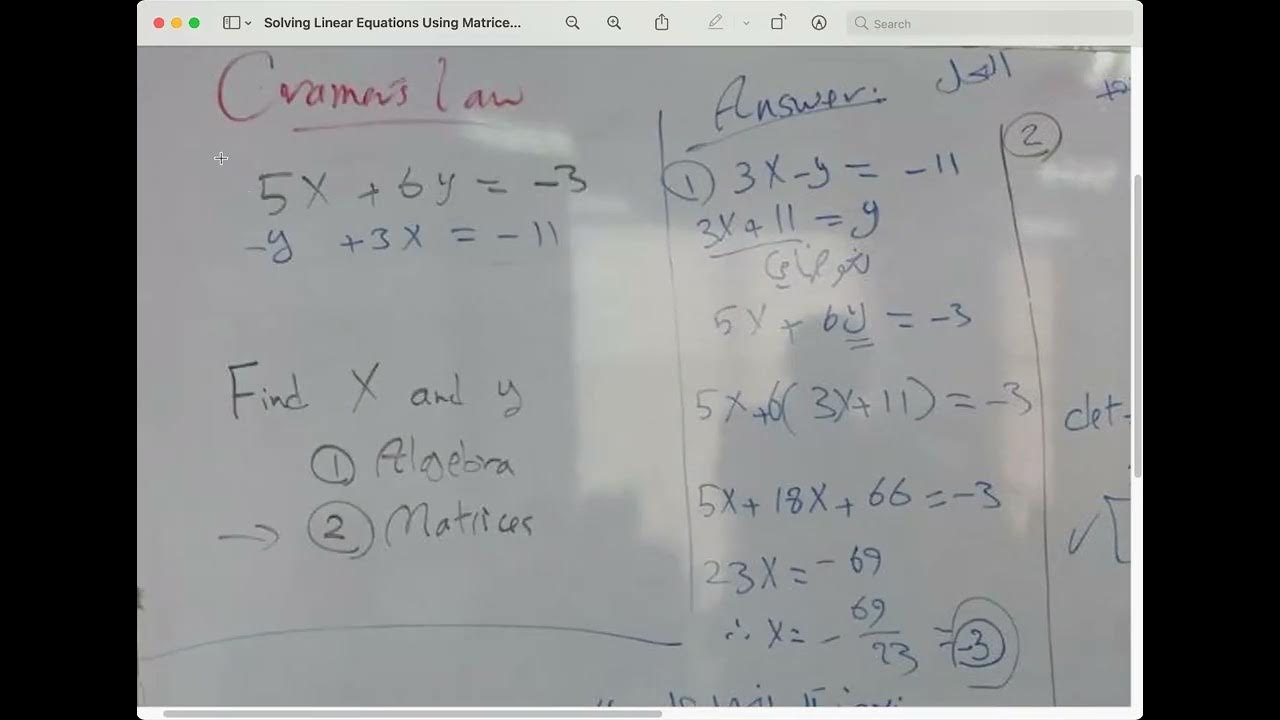 Solving Linear Equations Using Matrice...
Search
Cramer's law
5x + 6y = -3
-y +3x = -11
Find x and y
① Algebra
→ ② Matrices
Answer: الحل
① 3x-y = -11
3x+11 = y
5x + 6y = -3
5x+6(3x+11) = -3
5x+18x+66 = -3
23x = -69
∴ x = - 69/23 = -3
②
det